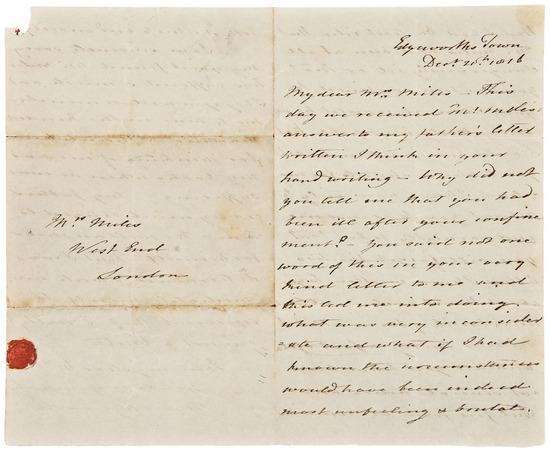 Mrs. Miles
West End
London
Edgeworths Town
Decr. 1816
My dear Mrs. Miles - This
day we received Mr. Miles
answer to my father's letter
written I think in your
hand writing - Why did not
you tell me that you had
been ill after your confine
ment? - You said not one
word of this in your very
kind letter to me and
this led me into doing
what was very inconsider
-ate and what if I had
known the circumstances
would have been indeed
most unfeeling & brutal.